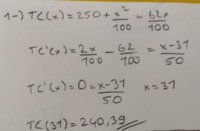 1-) TC(x) = 250 + x²/100 - 62x/100
TC'(x) = 2x/100 - 62/100 = x-31/50
TC'(x) = 0 = x-31/50 x = 31
TC(31) = 240,39